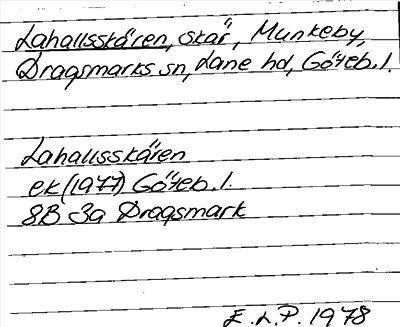 Lahallsskären, skär, Munkeby,
Dragsmarks sn, Lane hd, Göteb. l.
Lahallsskären
ek (1977) Göteb. l.
8B 3a Dragsmark
E. L. P. 1978